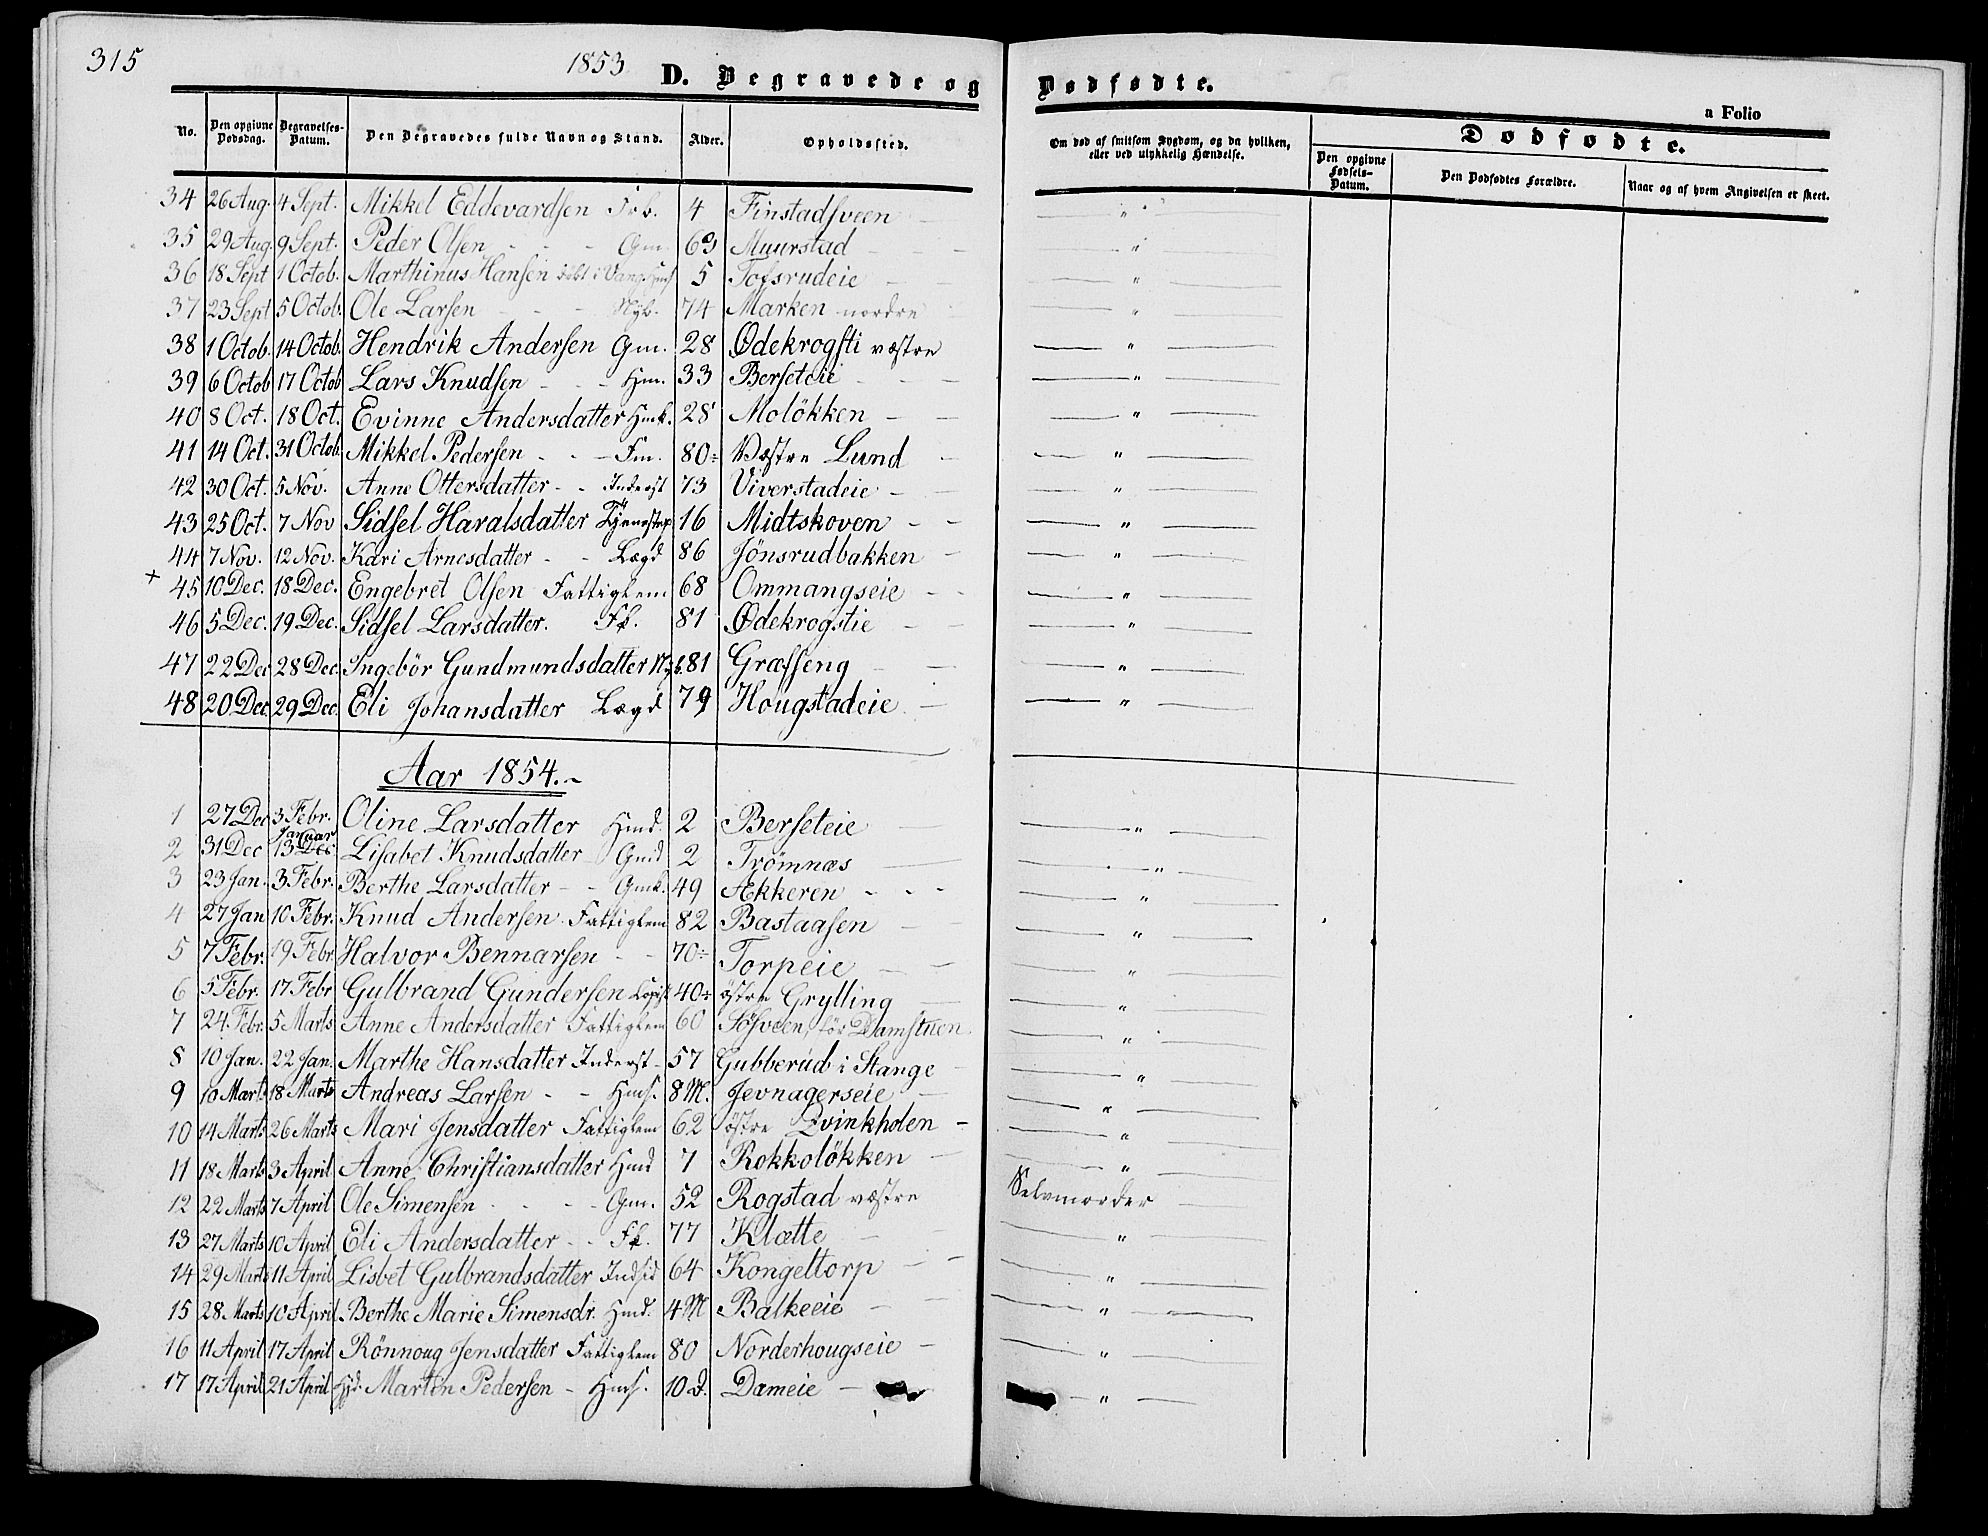 315
1853
D. Begravede og Dødfødte.
a Folio
No. Den opgivne Dødsdag. Begravelses-Datum. Den Begravedes fulde Navn og Stand. Alder. Opholdssted. Om død af smitsom Sygdom, og da hvilken, eller ved ulykkelig Hændelse. Dødfødte.
Den opgivne Fødsels-Datum. Den Dødfødtes Forældre. Naar og af hvem Angivelsen er skeet.
34 26 Aug. 4 Sept. Mikkel Eddevardsen 4 Finstadsveen "
35 29 Aug. 9 Sept. Peder Olsen Gm. 63 Muurstad "
36 18 Sept 1 Octob. Marthinus Hansen født i Vang Hms 5 Tofsrudeie "
37 23 Sept 5 Octob. Ole Larsen Nyb. 74 Marken nordre "
38 1 Octob. 14 Octob. Hendrik Andersen Gm. 28 Ødekrogsti væstre "
39 6 Octob 17 Octob Lars Knudsen Hm. 33 Berseteie "
40 8 Oct. 18 Oct. Evinne Andersdatter Hmk. 28 Moløkken "
41 14 Oct. 31 Octob. Mikkel Pedersen Fm. 80 Væstre Lund "
42 30 Oct. 5 Nov. Anne Ottersdatter Inderst 73 Viverstadeie "
43 25 Oct. 7 Nov Sidsel Haralsdatter Tjenestep 16 Midtskoven "
44 7 Nov. 12 Nov. Kari Arnesdatter Lægd 86 Jönsrudbakken "
+ 45 10 Dec. 18 Dec. Engebret Olsen Fattiglem 68 Ommangseie "
46 5 Dec. 19 Dec. Sidsel Larsdatter. Fk. 81 Ødekrogstie "
47 22 Dec 28 Dec. Ingebör Gundmundsdatter Nyb. 81 Græsseng "
48 20 Dec. 29 Dec. Eli Johansdatter Lægd 79 Hougstadeie "
Aar 1854.
1 27 Dec 3 Febr. Oline Larsdatter Hmd. 2 Berseteie "
2 31 Dec 13 Dec Januar Lisabet Knudsdatter Gmd 2 Trömnæs "
3 23 Jan. 3 Febr. Berthe Larsdatter Gmk. 49 Ækkeren "
4 27 Jan 10 Febr. Knud Andersen Fattiglem 82 Bastaasen "
5 7 Febr. 19 Febr. Halvor Bennarsen 70 Torpeie "
6 5 Febr. 17 Febr Gulbrand Gundersen 40 østre Grylling "
7 24. Febr. 5 Marts Anne Andersdatter Fattiglem 60 Damstuen "
8 10 Jan. 22 Jan. Marthe Hansdatter Inderst 57 Gubberud i Stange "
9 10 Marts 18 Marts Andreas Larsen Hms. 8 M. Jevnagerseie "
10 14 Marts 26 Marts Mari Jensdatter Fattiglem 62 østre Qvinkholen "
11 18 Marts 3 April Anne Christiansdatter Hmd 7 Rokkoløkken "
12 22 Marts 7 April Ole Simensen Gm. 52 Rogstad væstre Selvmorder
13 27 Marts 10 April Eli Andersdatter Fk. 77 Klætte "
14 29 Marts 11 April Lisbet Gulbrandsdatter Indsid 64 Kongeltorp "
15 28. Marts 10 April Berthe Marie Simensdr. Hmd. 4 M Balkeeie "
16 11 April 17 April Rönnoug Jensdatter Fattiglem 80 Norderhougseie "
17 17 April 21 April Hjd. Martin Pedersen Hms. 10 d. Dameie "